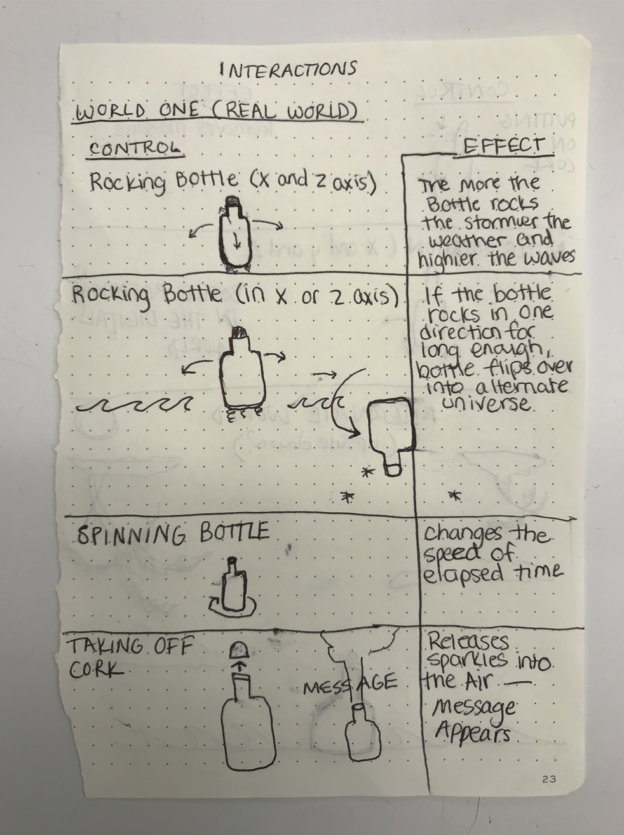 INTERACTIONS
WORLD ONE (REAL WORLD)
CONTROL
EFFECT
Rocking Bottle (x and z axis)
The more the
Bottle rocks
the stormier the
weather and
highier the waves
Rocking Bottle (in x or z axis)
If the bottle
rocks in one
direction for
long enough,
bottle flips over
into alternate
universe
SPINNING BOTTLE
changes the
speed of
elapsed time
TAKING OFF
CORK
MESSAGE
Releases
sparkles into
the Air —
Message
Appears
23